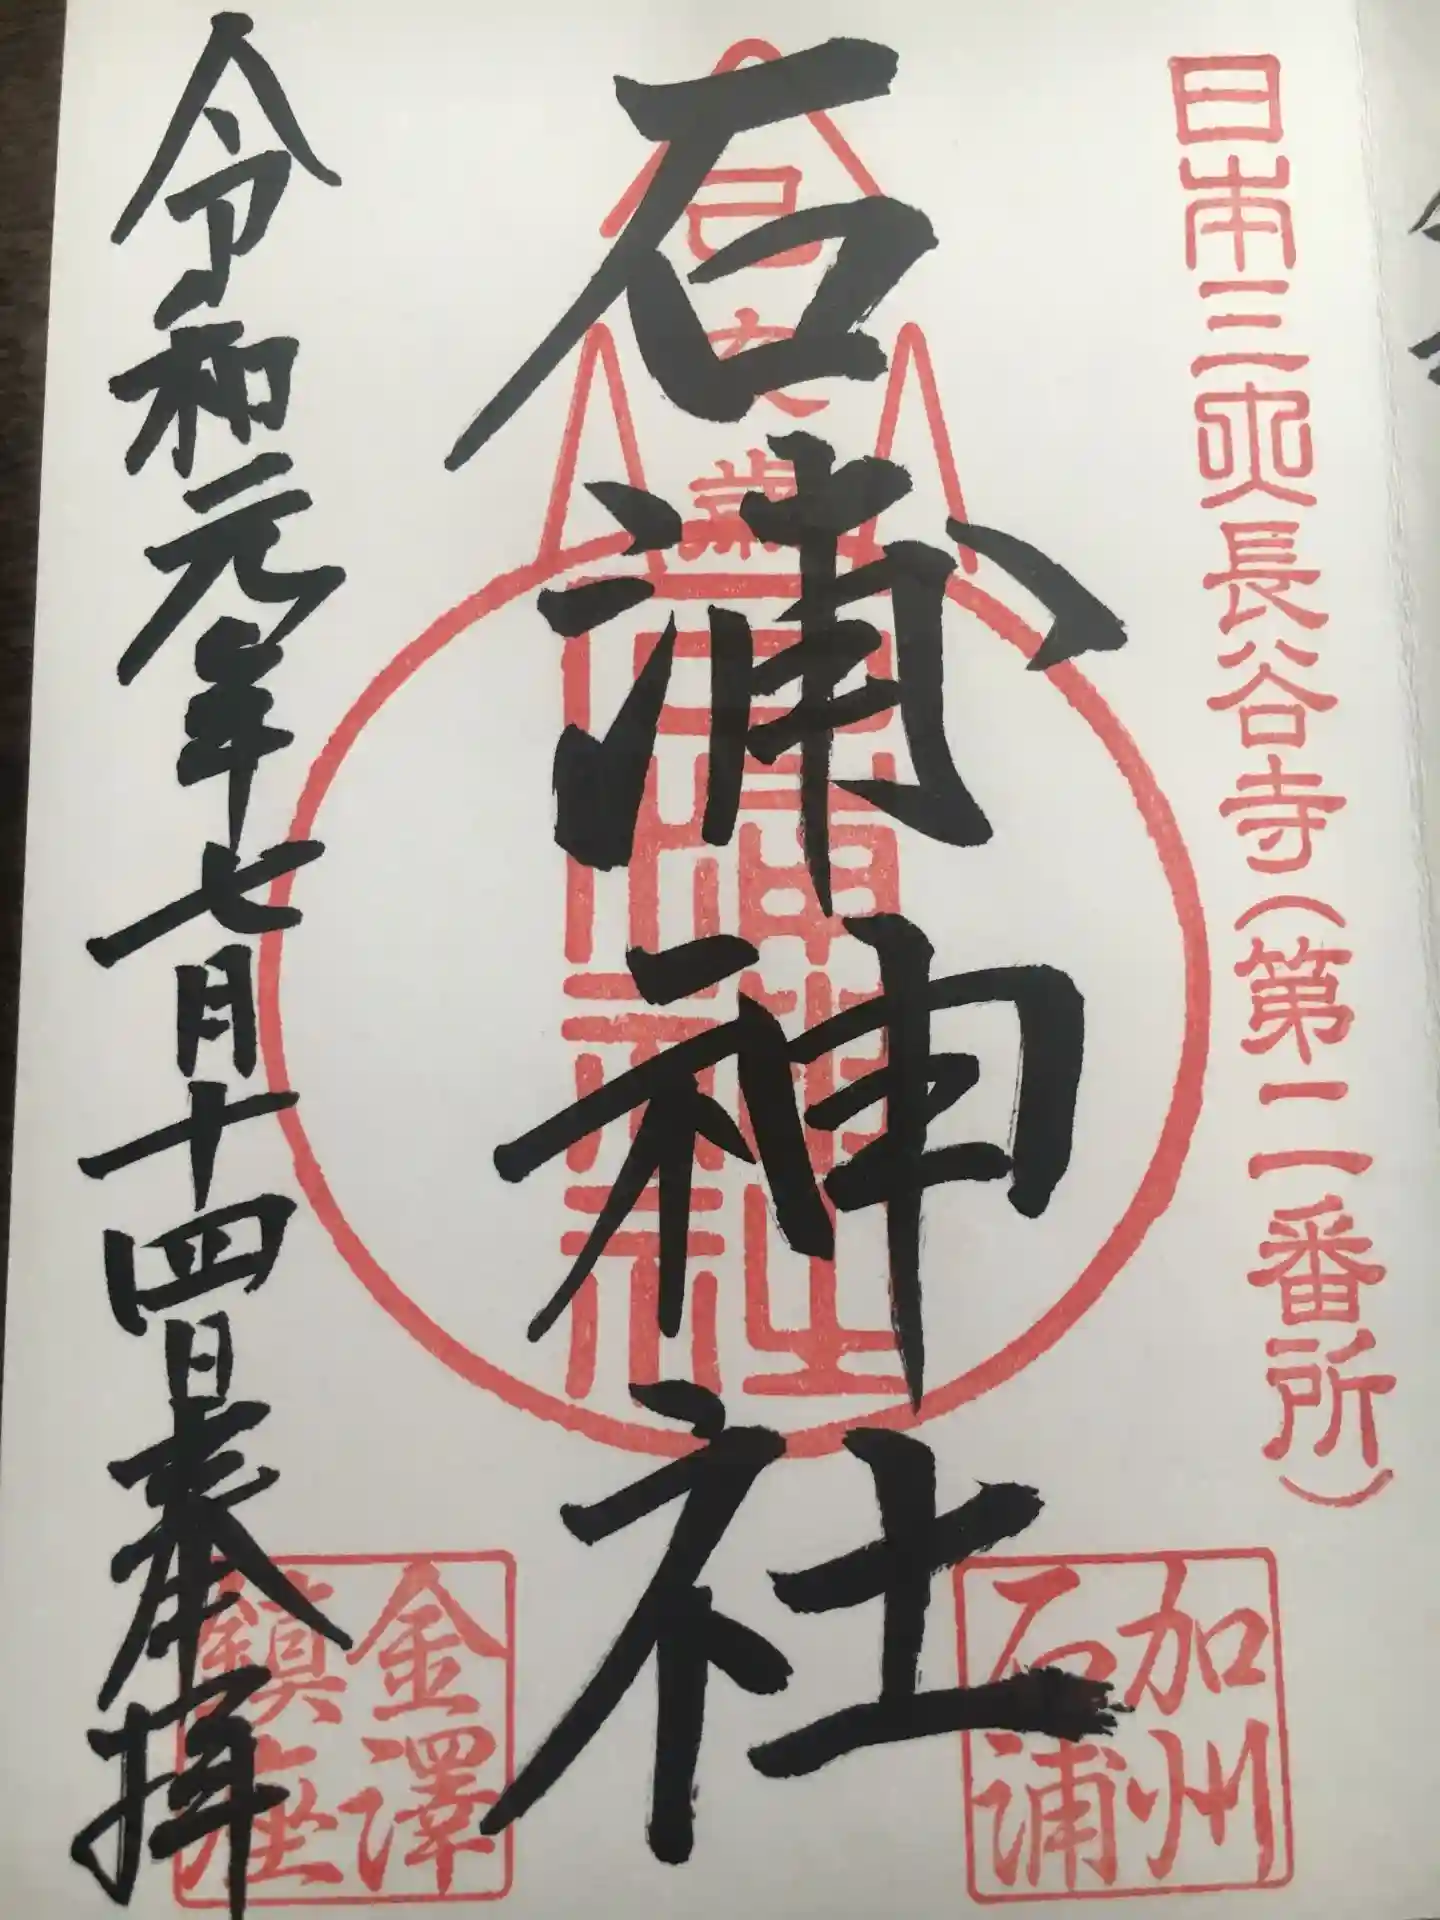 日本三大長谷寺（第二番所）
石浦神社
石浦神社
加州
石浦
令和元年七月十四日奉拝
金澤
鎮座